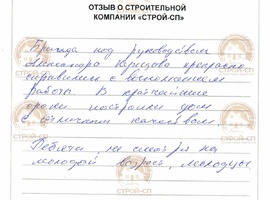 ОТЗЫВ О СТРОИТЕЛЬНОЙ
КОМПАНИИ «СТРОЙ-СП»
Бригада под руководством
Александра прекрасно
справились с выполнением
работы. В кратчайшие
сроки построили дом
с отличным качеством.
Ребята, не смотря на
молодой возраст, молодцы
СТРОЙ-СП
СТРОЙ-СП